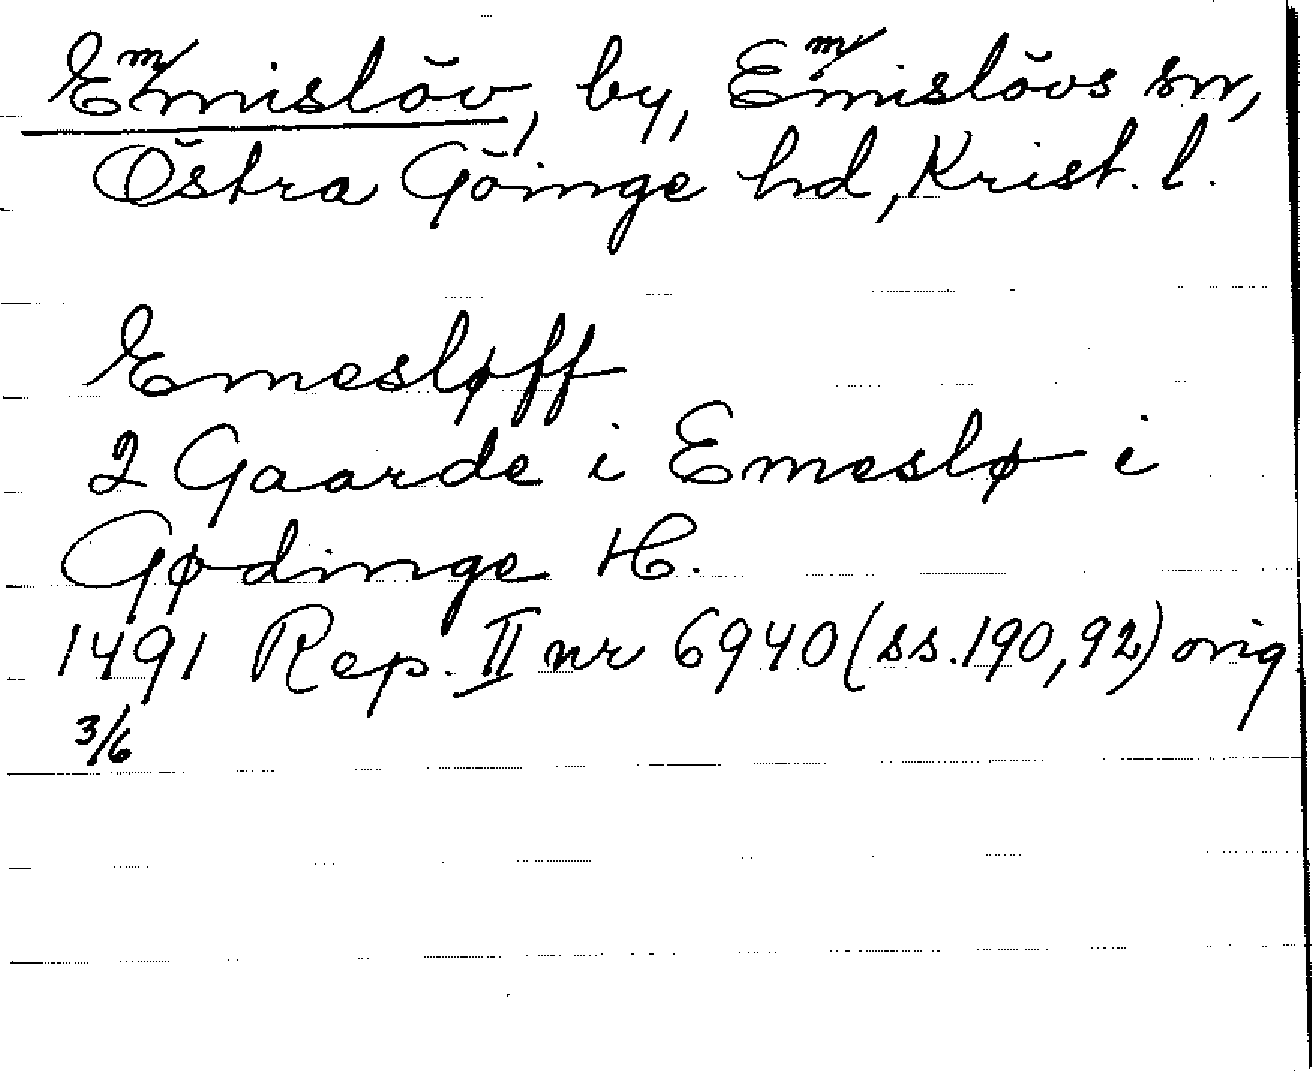 Emmislöv, by, Emmislövs sn,
Östra Göinge hd, Krist. l.
Emesløff
2 Gaarde i Emeslø i
Gødinge H.
1491 Rep. II nr 6940 (ss. 190, 92) orig
3/6